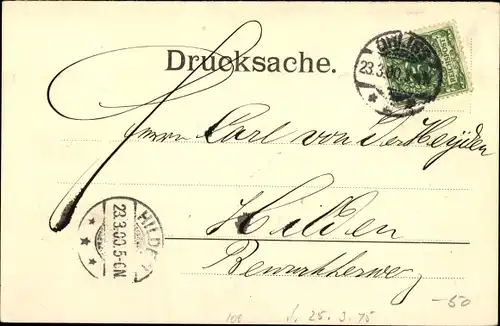 Drucksache.
OHLIGS
23.3.00.
Herrn Carl von der Heyden
Hilden
HILDEN
23.3.00.5-6N.
100 25.3.75
-50